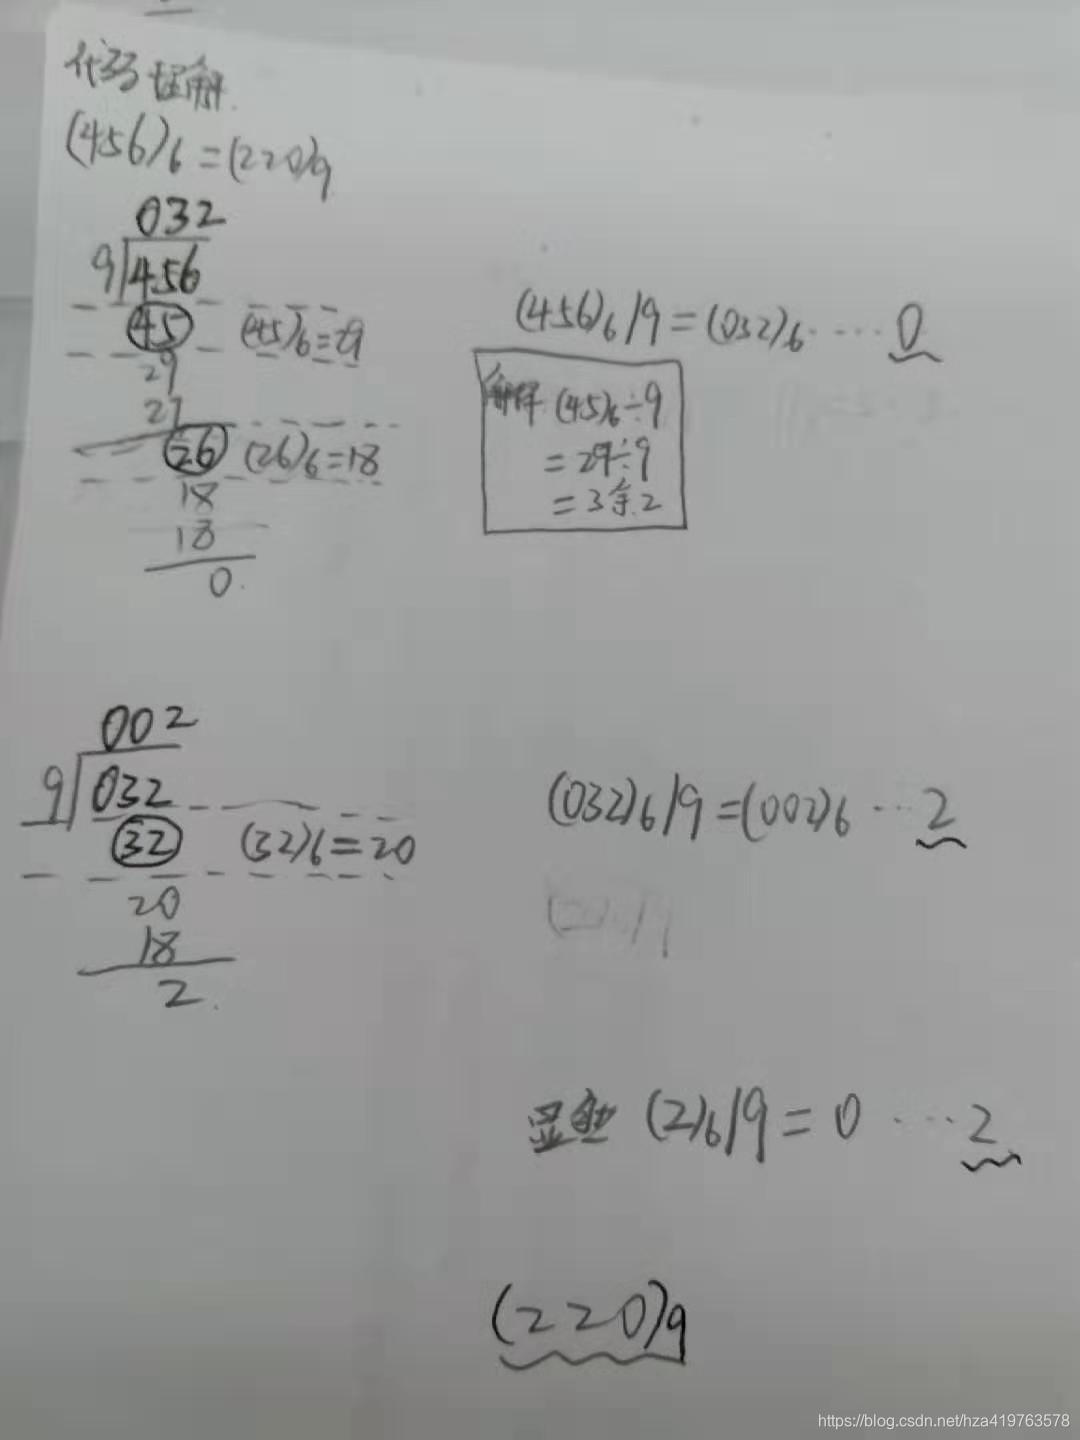 代码理解
(456)6=(220)9
032
9 456
45 (45)6=29
29
27
26 (26)6=18
18
18
0
(456)6/9=(032)6……0
解释 (45)6÷9
=29÷9
=3余2
002
9 032
32 (32)6=20
20
18
2
(032)6/9=(002)6…2
显然 (2)6/9=0……2
(220)9
https://blog.csdn.net/hza419763578